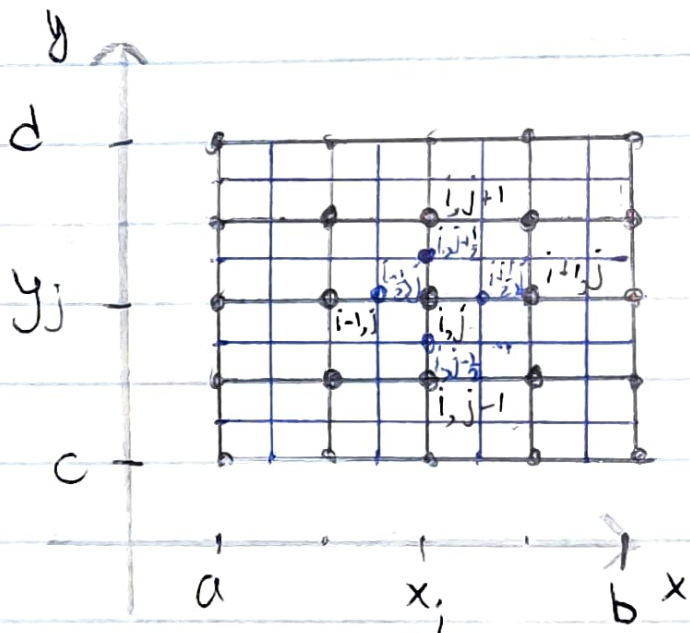 y
d
i,j+1
i,j+½
yj
i-½,j
i+½,j
i+1,j
i-1,j
i,j
i,j-½
i,j-1
c
a
xi
b
x